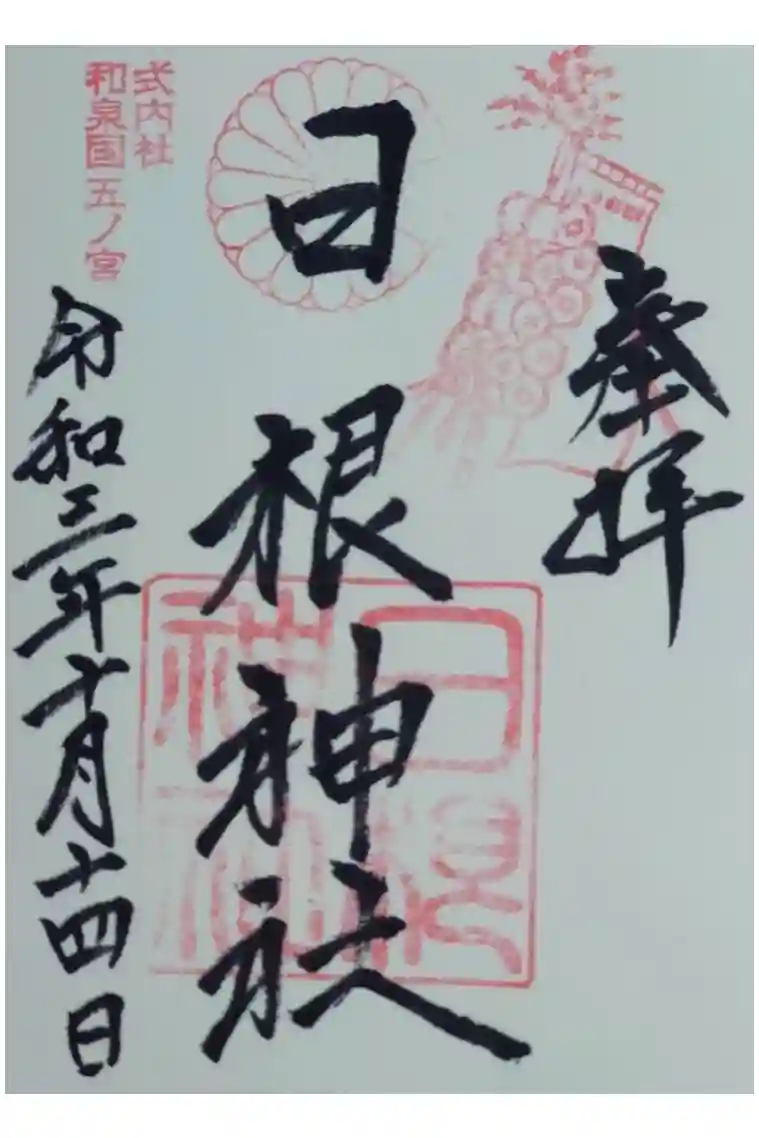 奉拝
日根神社
日根神社
式内社
和泉国五ノ宮
令和三年十月十四日